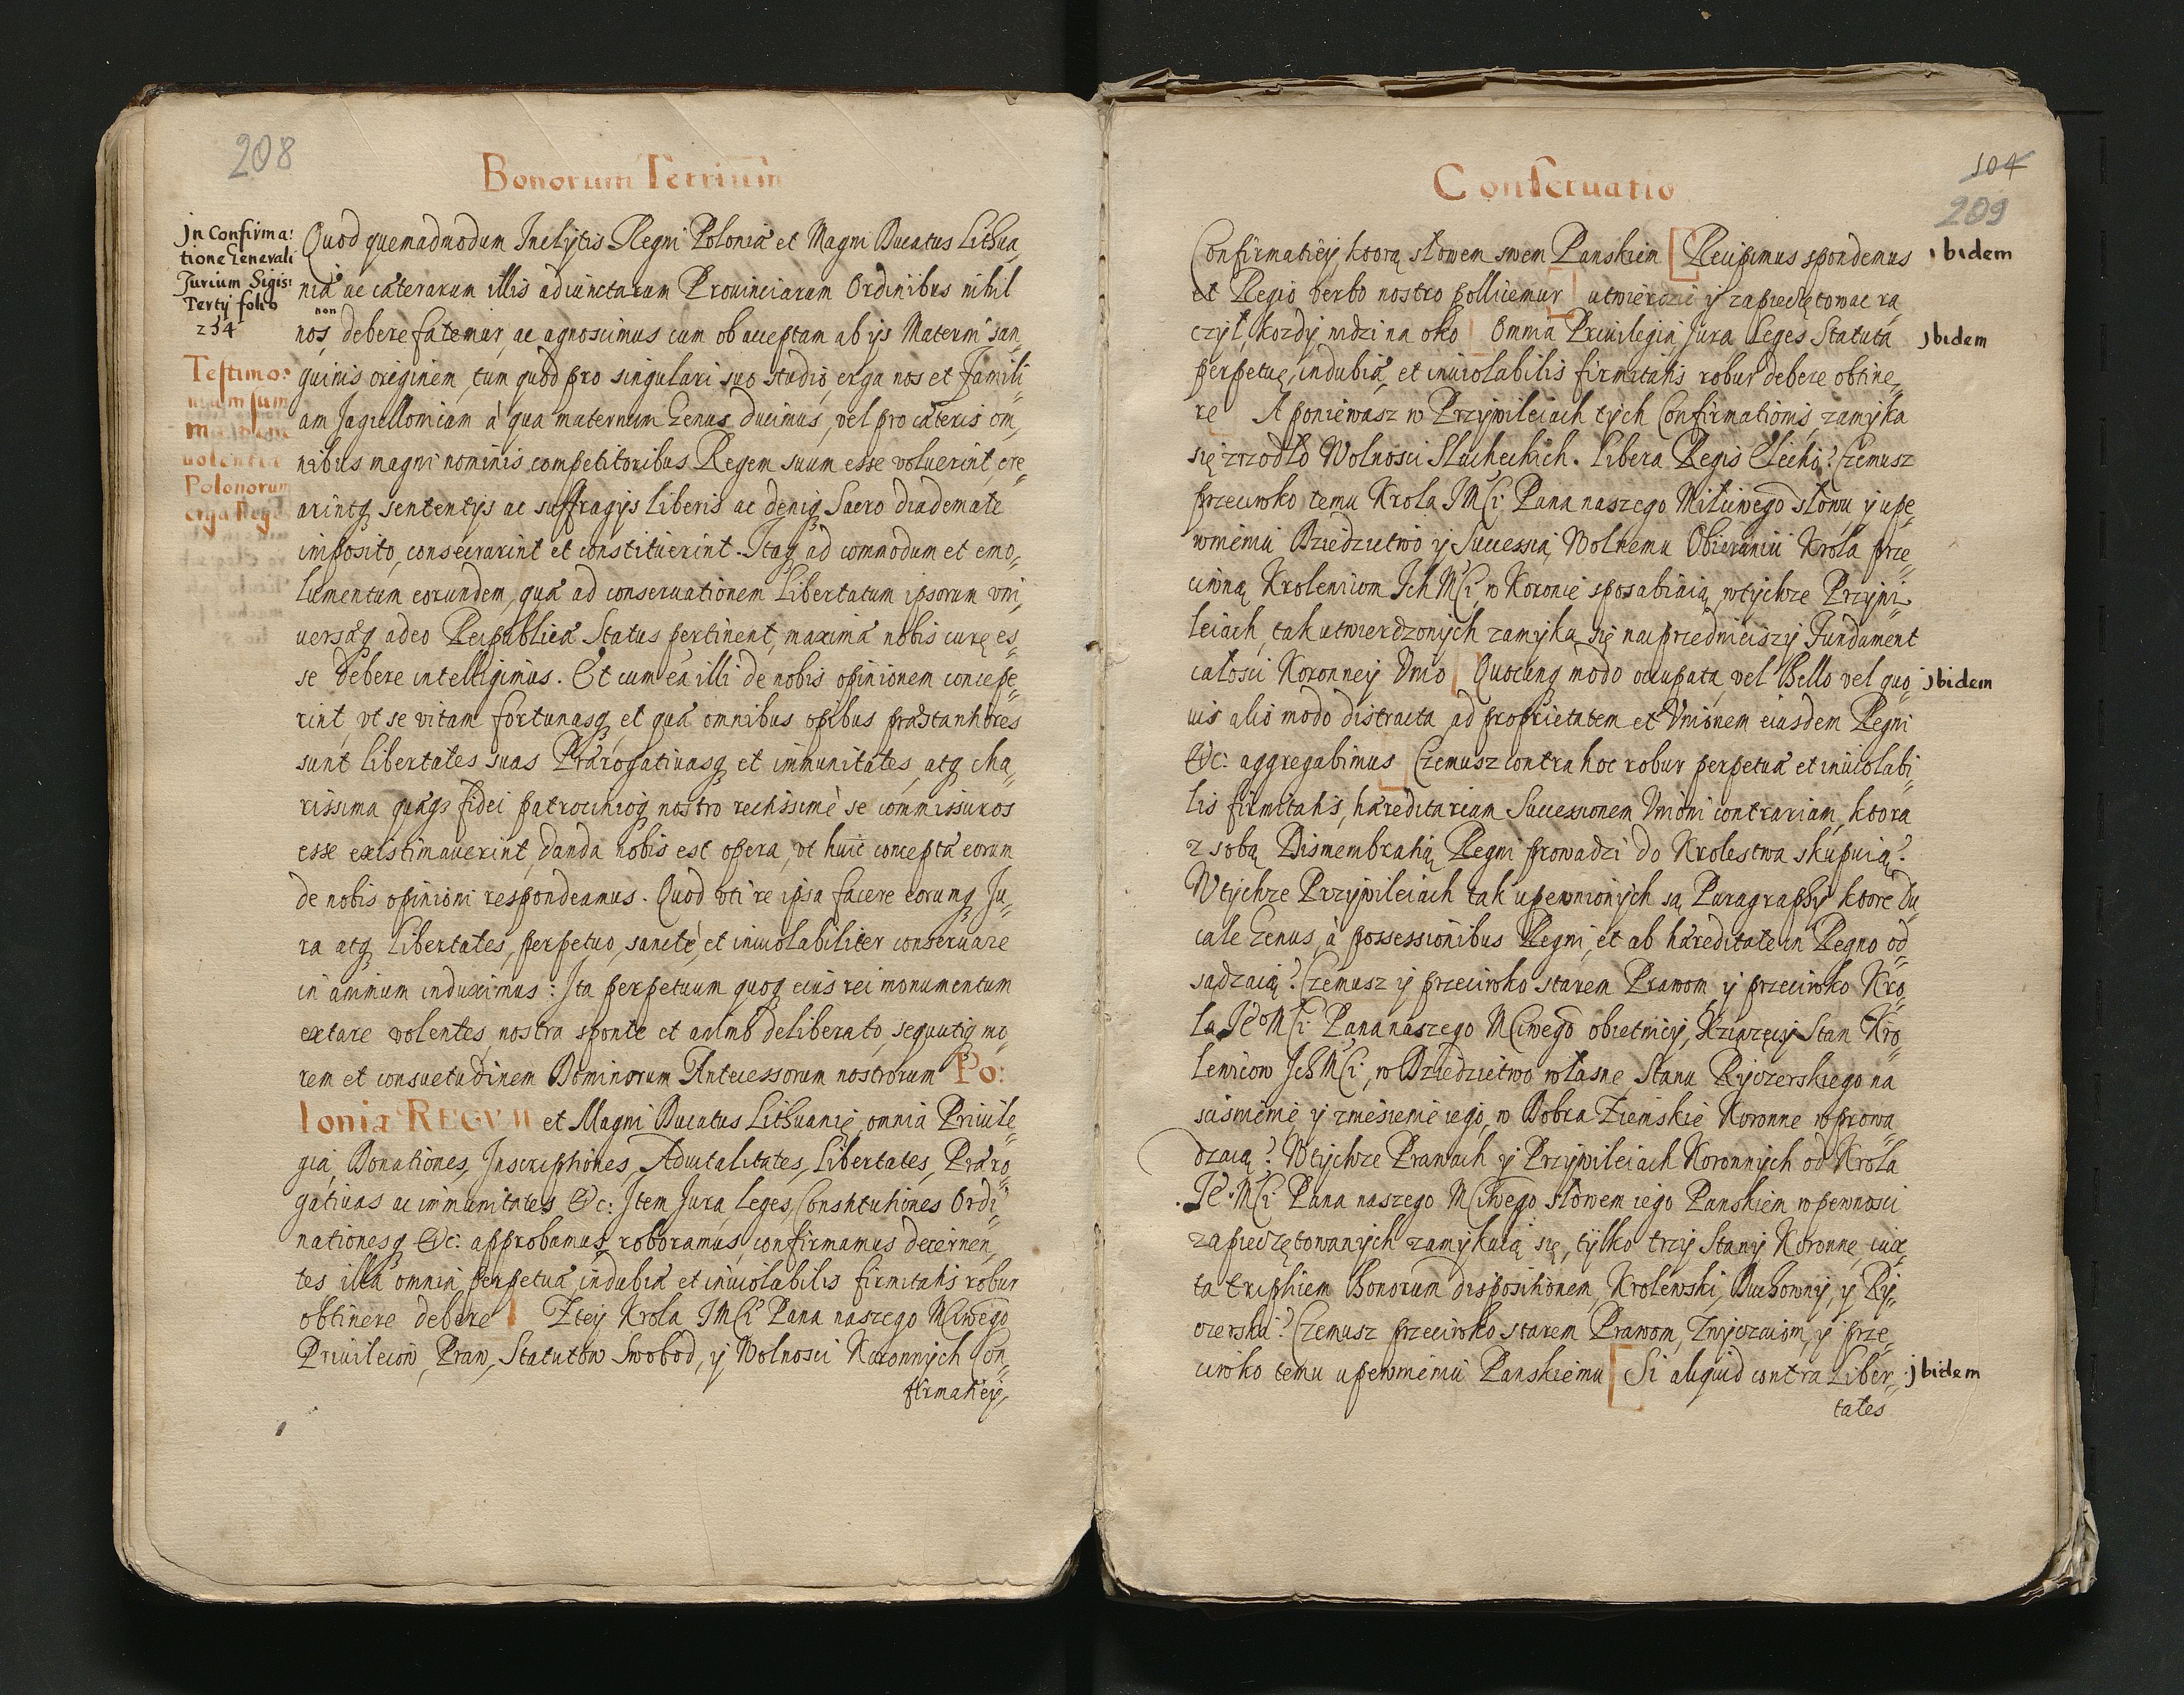 208
Bonorum Terrium
Jn Confirma:
tione Generali
Jurium Sigis:
Tertij folio
254
Testimo:
Polonorum
erga Reg
Quod quemadmodum Inclytis Regni Poloniæ et Magni Ducatus Lithua,
niæ ac cæterarum illis adiunctarum Prouinciarum Ordinibus nihil
non
nos debere fatemur, ac agnoscimus cum ob acceptam ab ijs Materni san,
guinis originem, tum quod pro singulari suo studio, erga nos et Famili
am Jagielloniam à qua maternum Genus ducimus, vel pro cæteris om,
nibus magni nominis competitoribus Regem suum esse voluerint, cre,
arintq sententijs ac suffragijs liberis ac deniq Sacro diademate
imposito, consecrarint et constituerint. Itaq ad commodum et emo,
lumentum eorundem, quæ ad conseruationem Libertatum ipsorum vni,
uersæq adeo Reipublicæ Status pertinent, maximæ nobis curę es,
se debere intelligimus. Et cum eã illi de nobis opinionem concepe,
rint, vt se vitam fortunasq, et quæ omnibus opibus præstantiores
sunt libertates suas Prærogatiuasq et immunitates, atq cha,
rissima quæq fidei patrocinioq nostro rectissimè se commissuros
esse existimauerint, danda nobis est opera, vt huic conceptæ eorum
de nobis opinioni respondeamus. Quod vti re ipsa facere eorumq Ju,
ra atq Libertates, perpetuo, sanctè, et inuiolabiliter conseruare
in animum induximus: Ita perpetuum quoq eius rei monumentum
extare volentes, nostra sponte et animo deliberato, sequutiq mo,
rem et consuetudinem Dominorum Antecessorum nostrorum Po:
loniæ REGVM et Magni Ducatus Lithuanię, omnia Priuile,
gia, Donationes, Inscriptiones, Aduitalitates, Libertates, Præro,
gatiuas ac immunitates &c: Item Jura, Leges, Constitutiones Ordi,
nationesq &c: approbamus, roboramus, confirmamus decernen,
tes illa omnia, perpetuæ indubiæ et inuiolabilis firmitatis robur
obtinere debere Z tey Krola JMCi Pana naszego Mciwego
Priuileiow, Praw, Statutow Swobod, y Wolnosci Koronnych Con,
firmatiey,
104
209
Conseruatio
Confirmatiey, ktorą słowem swem Panskiem [Recipimus spondemus
jbidem
et Regio verbo nostro pollicemur] utwierdzić y zapieczętowac ra,
czył, kozdy widzi na oko Omnia Priuilegia, Jura Leges Statuta
jbidem
perpetuę, indubiæ, et inuiolabilis firmitatis robur debere obtine,
re A poniewasz w Przywileiach tych Confirmationis, zamyka
się zrzodło Wolnosci Slacheckich. Libera Regis Electio? Czemusz
przeciwko temu Krola JMCi Pana naszego Miłciwego słowu y upe,
wnieniu Dziedzictwo y Successią Wolnemu Obieraniu Krola prze,
ciwną Krolewicom Ich MCi w Koronie sposabiaią, wtychze Przywi,
leiach, tak utwierdzonych zamyka się naprzednieiszy Fundament
całosci Koronney Vnio Quocunq modo occupata, vel Bello vel quo,
jbidem
uis alio modo distracta ad proprietatem et Vnionem eiusdem Regni
&c: aggregabimus Czemusz contra hoc robur perpetuæ et inuiolabi,
lis firmitatis, hæreditariam Successionem Vnioni contrariam, ktora
z sobą Dismembratią Regni prowadzi do Krolestwa skupuią?
Wtychze Przywileiach tak upewnionych są Paragraphy ktore Du,
cale Genus, à possessionibus Regni, et ab hæreditate in Regno od,
sądzaią? Czemusz y przeciwko starem Prawom y przeciwko Kro,
la Je°MCi Pana naszego Mciwego obietnicy, Xiązęcy Stan Kro,
lewicow Ich MCi, w Dziedzictwo własne, Stanu Ryczerskiego na
scisnienie, y zniesienie iego, w Dobra Ziemskie Koronne wprowa,
dzaią? Wtychze Prawach y Przywileiach Koronnych od Krola
Je°MCi Pana naszego Mciwego słowem iego Panskiem wpewnosci
zapieczętowanych zamykaią się, tylko trzy Stany Koronne, iux,
ta triplicem Bonorum dispositionem, Krolewski, Duchowny, y Ry,
czerski? Czemusz przeciwko starem Prawom, Zwyczaiom, y prze,
ciwko temu upewnieniu Panskiemu [Si aliquid contra Liber,
jbidem
tates